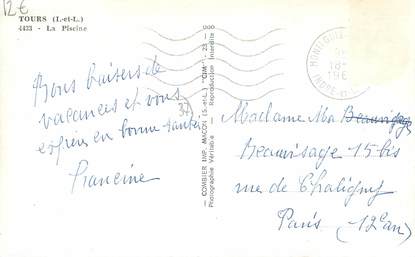 12€
TOURS (I.-et-L.)
4433 - La Piscine
Bons baisers de
vacances et vous
espère en bonne santé.
Francine
37
COMBIER IMP. MACON (S.-et-L.) "CIM" - 23 - 000
Photographie Véritable Reproduction Interdite
18-
196
INDRE-et-L
Madame Ma
Beauvisage 15 bis
rue de Chaligny
Paris (-12e arr)